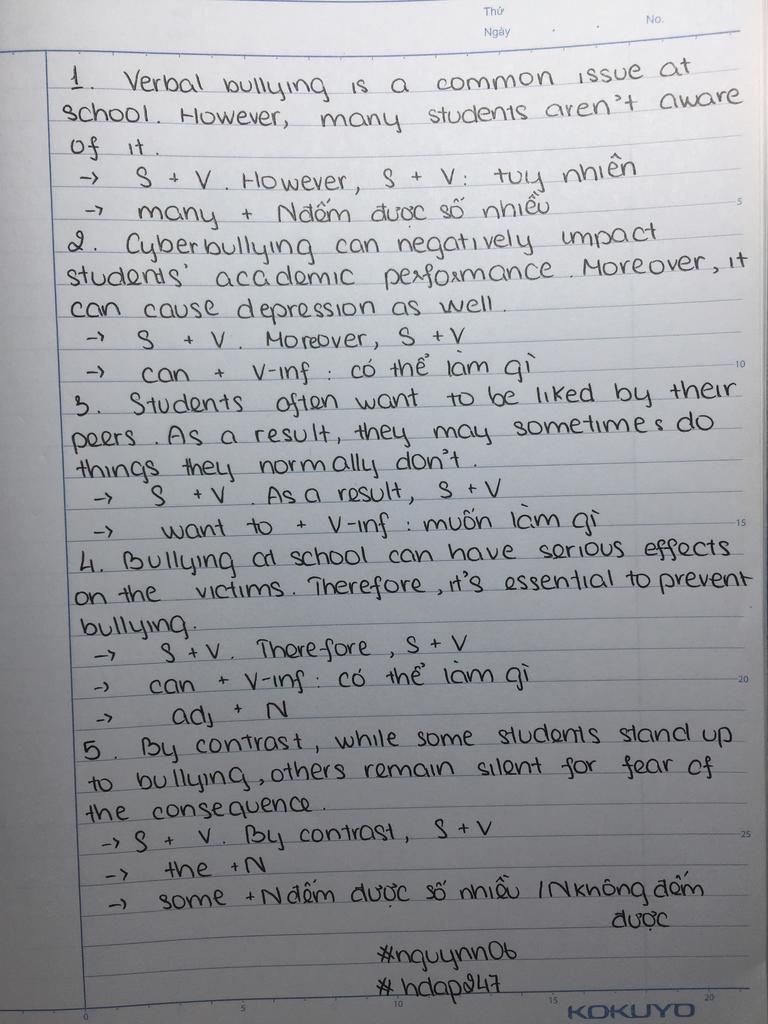 Thứ
Ngày
No.
1. Verbal bullying is a common issue at
school. However, many students aren't aware
of it.
→ S + V. However, S + V: tuy nhiên
→ many + Nđếm được số nhiều
5
2. Cyberbullying can negatively impact
students' academic performance. Moreover, it
can cause depression as well.
→ S + V. Moreover, S + V
→ can + V-inf: có thể làm gì
10
3. Students often want to be liked by their
peers. As a result, they may sometimes do
things they normally don't.
→ S + V. As a result, S + V
→ want to + V-inf: muốn làm gì
15
4. Bullying at school can have serious effects
on the victims. Therefore, it's essential to prevent
bullying.
→ S + V. Therefore, S + V
→ can + V-inf: có thể làm gì
20
→ adj + N
5. By contrast, while some students stand up
to bullying, others remain silent for fear of
the consequence.
→ S + V. By contrast, S + V
25
→ the + N
→ some + Nđếm được số nhiều / Nkhông đếm
được
#nguynn06
#hdap247
0 5 10 15 20
KOKUYO